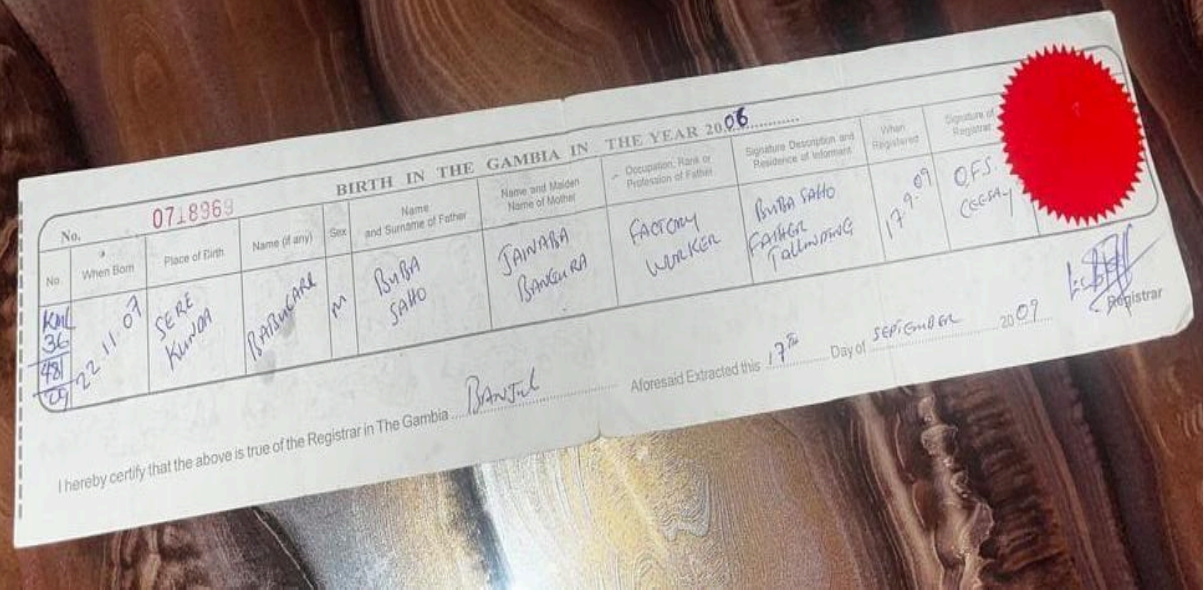 BIRTH IN THE GAMBIA IN THE YEAR 2006
No. 0718969
No.
When Born
Place of Birth
Name (if any)
Sex
Name
and Surname of Father
Name and Maiden
Name of Mother
Occupation, Rank or
Profession of Father
Signature Description and
Residence of Informant
When
Registered
Signature of
Registrar
KML
36
481
29
22.11.07
SERE
KUNDA
BABUCARR
M
BUBA
SAHO
JAINABA
BANGURA
FACTORY
WORKER
BUBA SAHO
FATHER
TALLINDING
17.9.09
O.F.S.
CEESAY
Registrar
I hereby certify that the above is true of the Registrar in The Gambia BANJUL Aforesaid Extracted this 17th Day of SEPTEMBER 2009